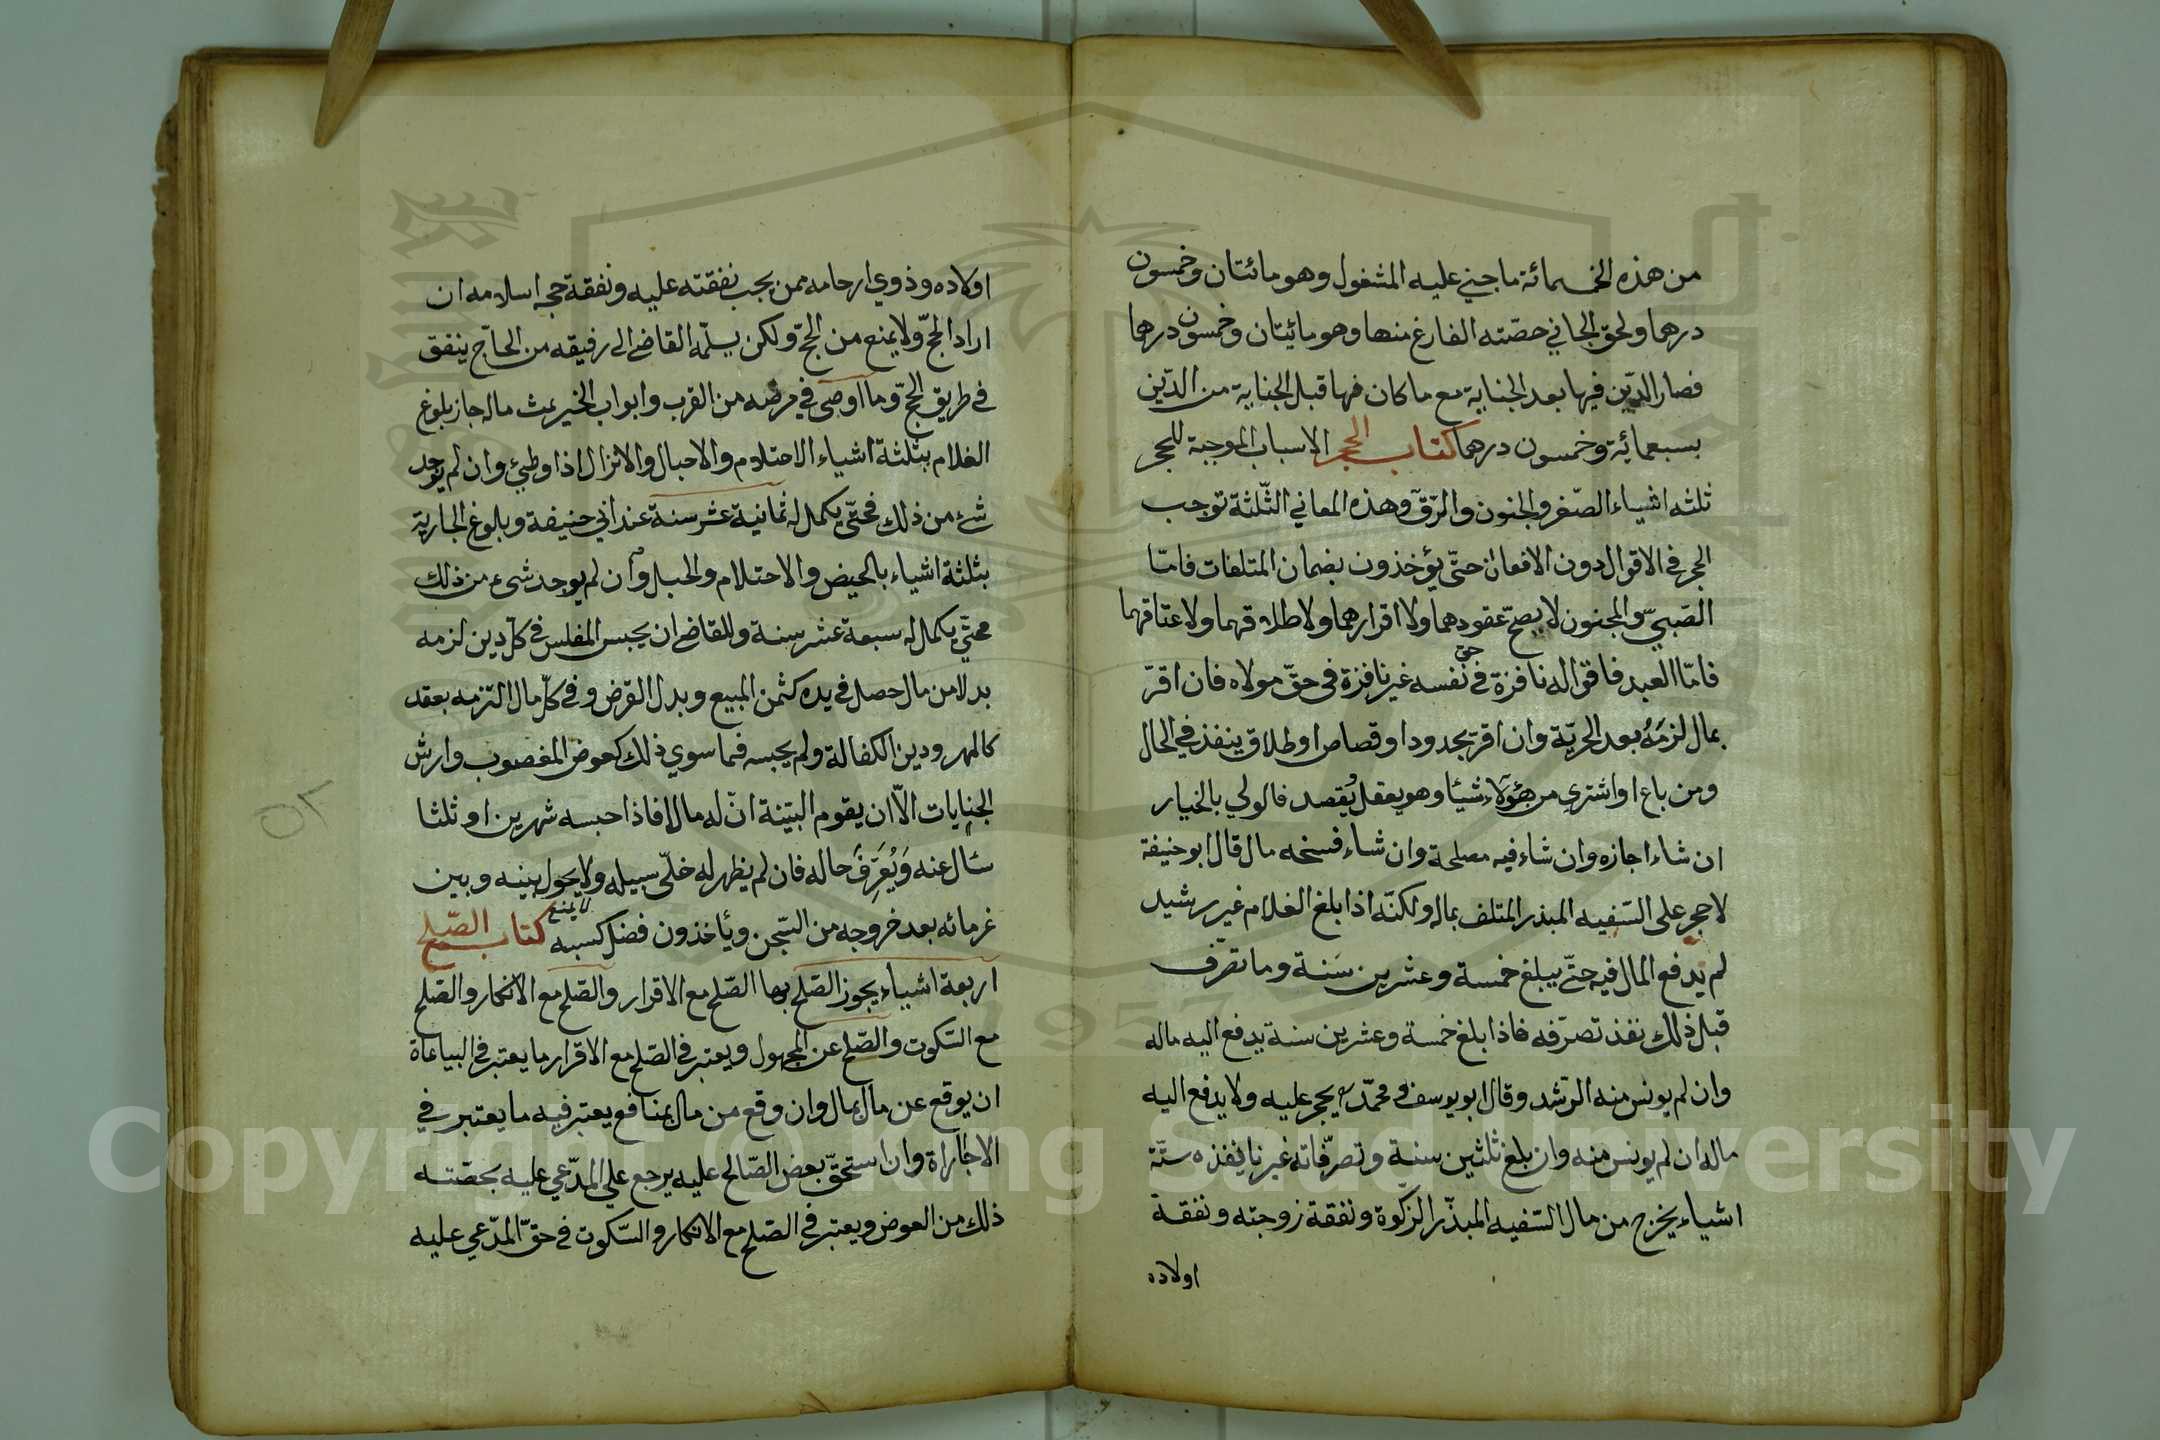 من هذه الخمسمائة ما جني عليه المشغول وهو مائتان وخمسون
درهما ولحق الجاني حصّته الفارغ منها وهو مائيتان وخمسون درهما
فصار الدّين فيها بعد الجناية مع ما كان فيها قبل الجناية من الدّين
بسبعمائة وخمسون درهما كتاب الحجر الاسباب الموجبة للحجر
ثلثه اشياء الصّغر والجنون والرّقّ وهذه المعاني الثّلثة توجب
الحجر في الاقوال دون الافعال حتّى يؤخذون بضمان المتلفات فامّا
الصّبيّ والمجنون لا يصحّ عقودهما ولا اقرارهما ولا طلاقهما ولا عتاقهما
فامّا العبد فاقواله نافزة في حق نفسه غير نافزة في حقّ مولاه فان اقرّ
بمال لزمَهُ بعد الحريّة وان اقرّ بحدود او قصاص او طلاق ينفذ في الحال
ومن باع او اشترى من هؤلاء شيئا وهو يعقل يُقصد فالولي بالخيار
ان شاء اجازه وان شاء فيه مصلحة وان شاء فسخه مال قال ابو حنيفة
لا حجر على السّفيه المبذر المتلف بماله ولكنّه اذا بلغ الغلام غير رشيد
لم يدفع المال فيه حتّى يبلغ خمسة وعشرين سَنة وما تصرّف
قبل ذلك نفذ تصرّفه فاذا بلغ خمسة وعشرين سنة يدفع اليه ماله
وان لم يونس منه الرّشد وقال ابو يوسف ومحمّد يحجر عليه ولا يدفع اليه
ماله ان لم يونس منه وان بلغ ثلثين سنة وتصرّفاته غير نايفذه ستّة
اشياء يخرج من مال السّفيه المبذّر الزّكوة ونفقة زوجته ونفقة
اولاده
اولاده وذوي ارحامه ممن يجب نفقته عليه ونفقة حجه اسلامه ان
اراد الحجّ ولا يمنع من الحجّ ولكن يسلّمه القاضي الى رفيقه من الحاجّ ينفق
في طريق الحجّ وما اوصى في مرضه من القرب وابواب الخير بمث ماله جاز بلوغ
الغلام بثلثة اشياء الاحتلام والاحبال والانزال اذا وطيئ وان لم يوجد
شيء من ذلك فحتّى يكمل له ثمانية عشر سنة عند ابي حنيفة وبلوغ الجارية
بثلثة اشياء بالحيض والاحتلام والحبل وان لم يوجد شيء من ذلك
فحتّي يكمل له سبعة عشر سنة وللقاضي ان يحبس المفلس في كلّ دين لزمه
بدلا من مال حصل في يده كثمن المبيع وبدل القرض وفي كلّ مال التزمه بعقد
كالمهر ودين الكفالة ولم يحبسه فيما سوي ذلك كعوض المغصوب وارش
الجنايات الاّ ان يقوم البيّنة انّ له مالا فاذا حبسه شهرين او ثلثا
سئال عنه وَيُعَرِّفَ حاله فان لم يظهر له خلّى سبيله ولا يحول بينه وبين
غرمائه بعد خروجه من السّجن ويأخذون فضل كسبه لا يمنع كتاب الصّلح
اربعة اشياء يجوز الصّلح بها الصّلح مع الاقرار والصّلح مع الانكار والصّلح
مع السّكوت والصّلح عن المجهول ويعتبر في الصّلح مع الاقرار ما يعتبر في البياعاة
ان يوقع عن مال بمال وان وقع من مال بمنافع يعتبر فيه ما يعتبر في
الاجاراة وان استحقّ بعض الصّالح عليه يرجع على المدّعي عليه بحصّته
ذلك من العوض ويعتبر في الصّلح مع الانكار والسّكوت في حقّ المدّعي عليه
Copyright © King Saud University
1957